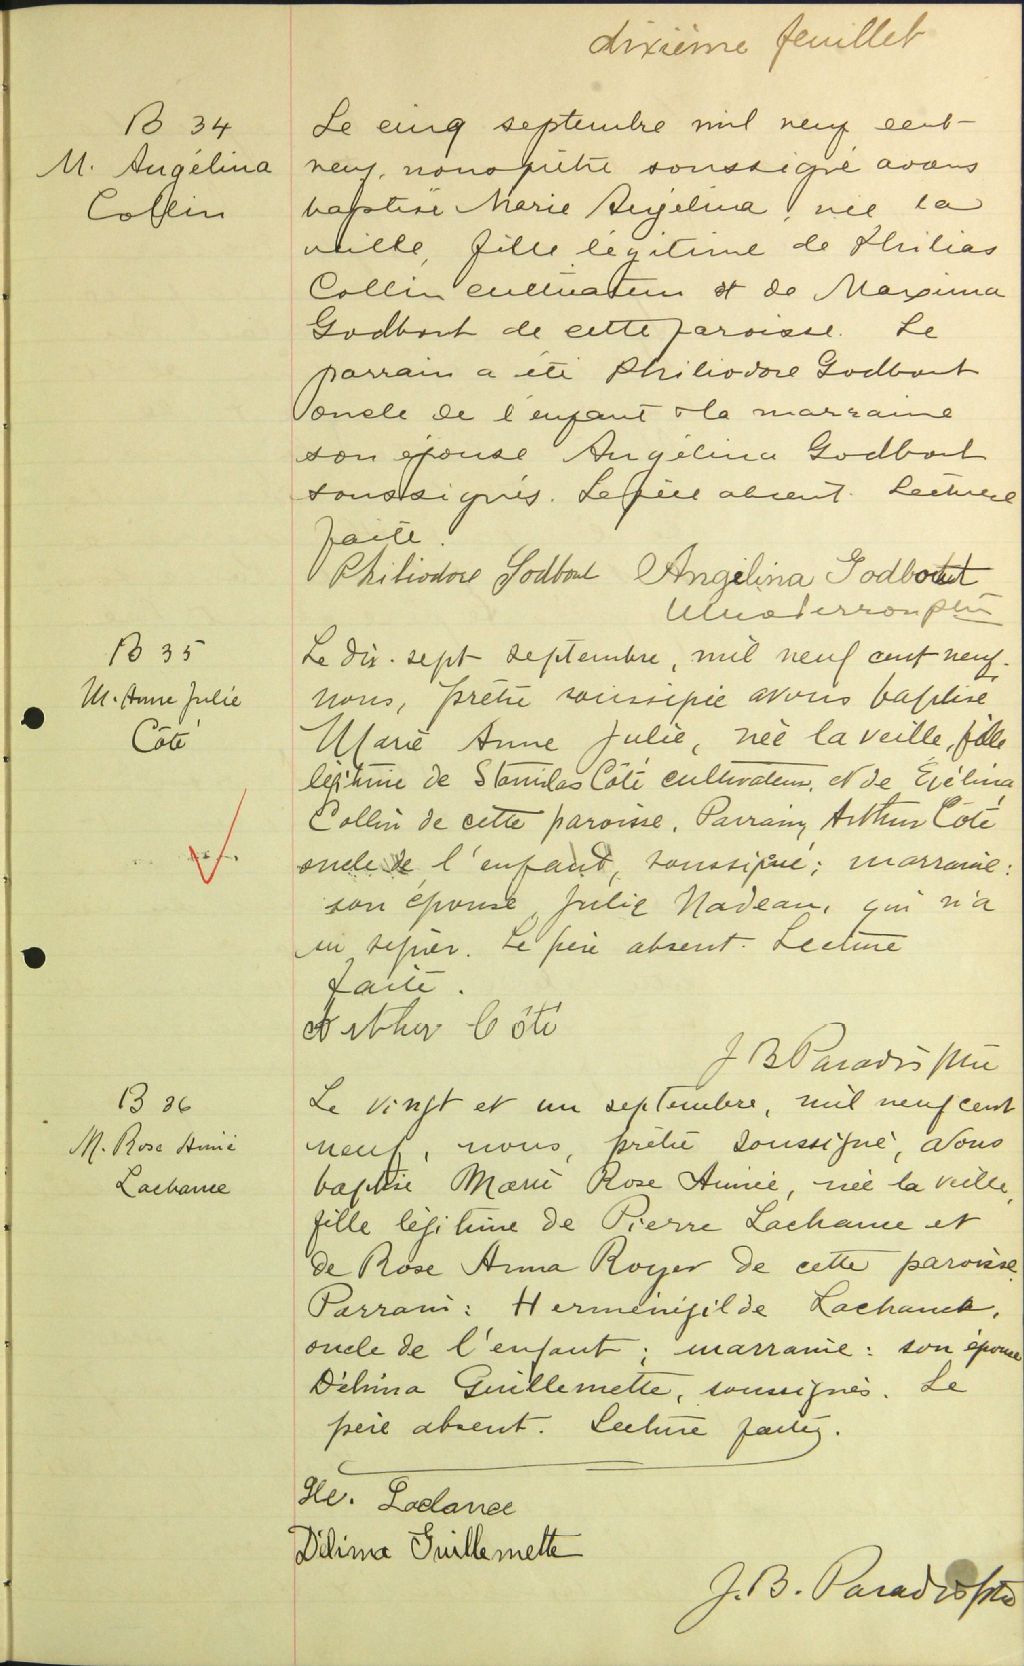 dixième feuillet
B 34
M. Angélina
Collin
Le cinq septembre mil neuf cent
neuf, nous prêtre soussigné avons
baptisé Marie Angélina, née la
veille, fille légitime de Philias
Collin cultivateur et de Maxima
Godbout de cette paroisse. Le
parrain a été Philiodore Godbout
oncle de l'enfant & la marraine
son épouse Angélina Godbout
soussignés. Le père absent. Lecture
faite.
Philiodore Godbout Angélina Godbout
ptre
B 35
M. Anne Julie
Côté
Le dix-sept septembre, mil neuf cent neuf,
nous, prêtre soussigné avons baptisé
Marie Anne Julie, née la veille, fille
légitime de Stanislas Côté cultivateur, et de Exélina
Collin de cette paroisse. Parrain, Arthur Côté
oncle de l'enfant, soussigné; marraine:
son épouse, Julie Nadeau, qui n'a
su signer. Le père absent. Lecture
faite.
Arthur Côté
J B Paradis ptre
B 36
M. Rose Aimée
Lachance
Le vingt et un septembre, mil neuf cent
neuf, nous, prêtre soussigné, avons
baptisé Marie Rose Aimée, née la veille,
fille légitime de Pierre Lachance et
de Rose Anna Royer de cette paroisse.
Parrain: Herménégilde Lachance,
oncle de l'enfant; marraine: son épouse
Délima Guillemette, soussignés. Le
père absent. Lecture faite.
He. Lachance
Délima Guillemette
J. B. Paradis ptre